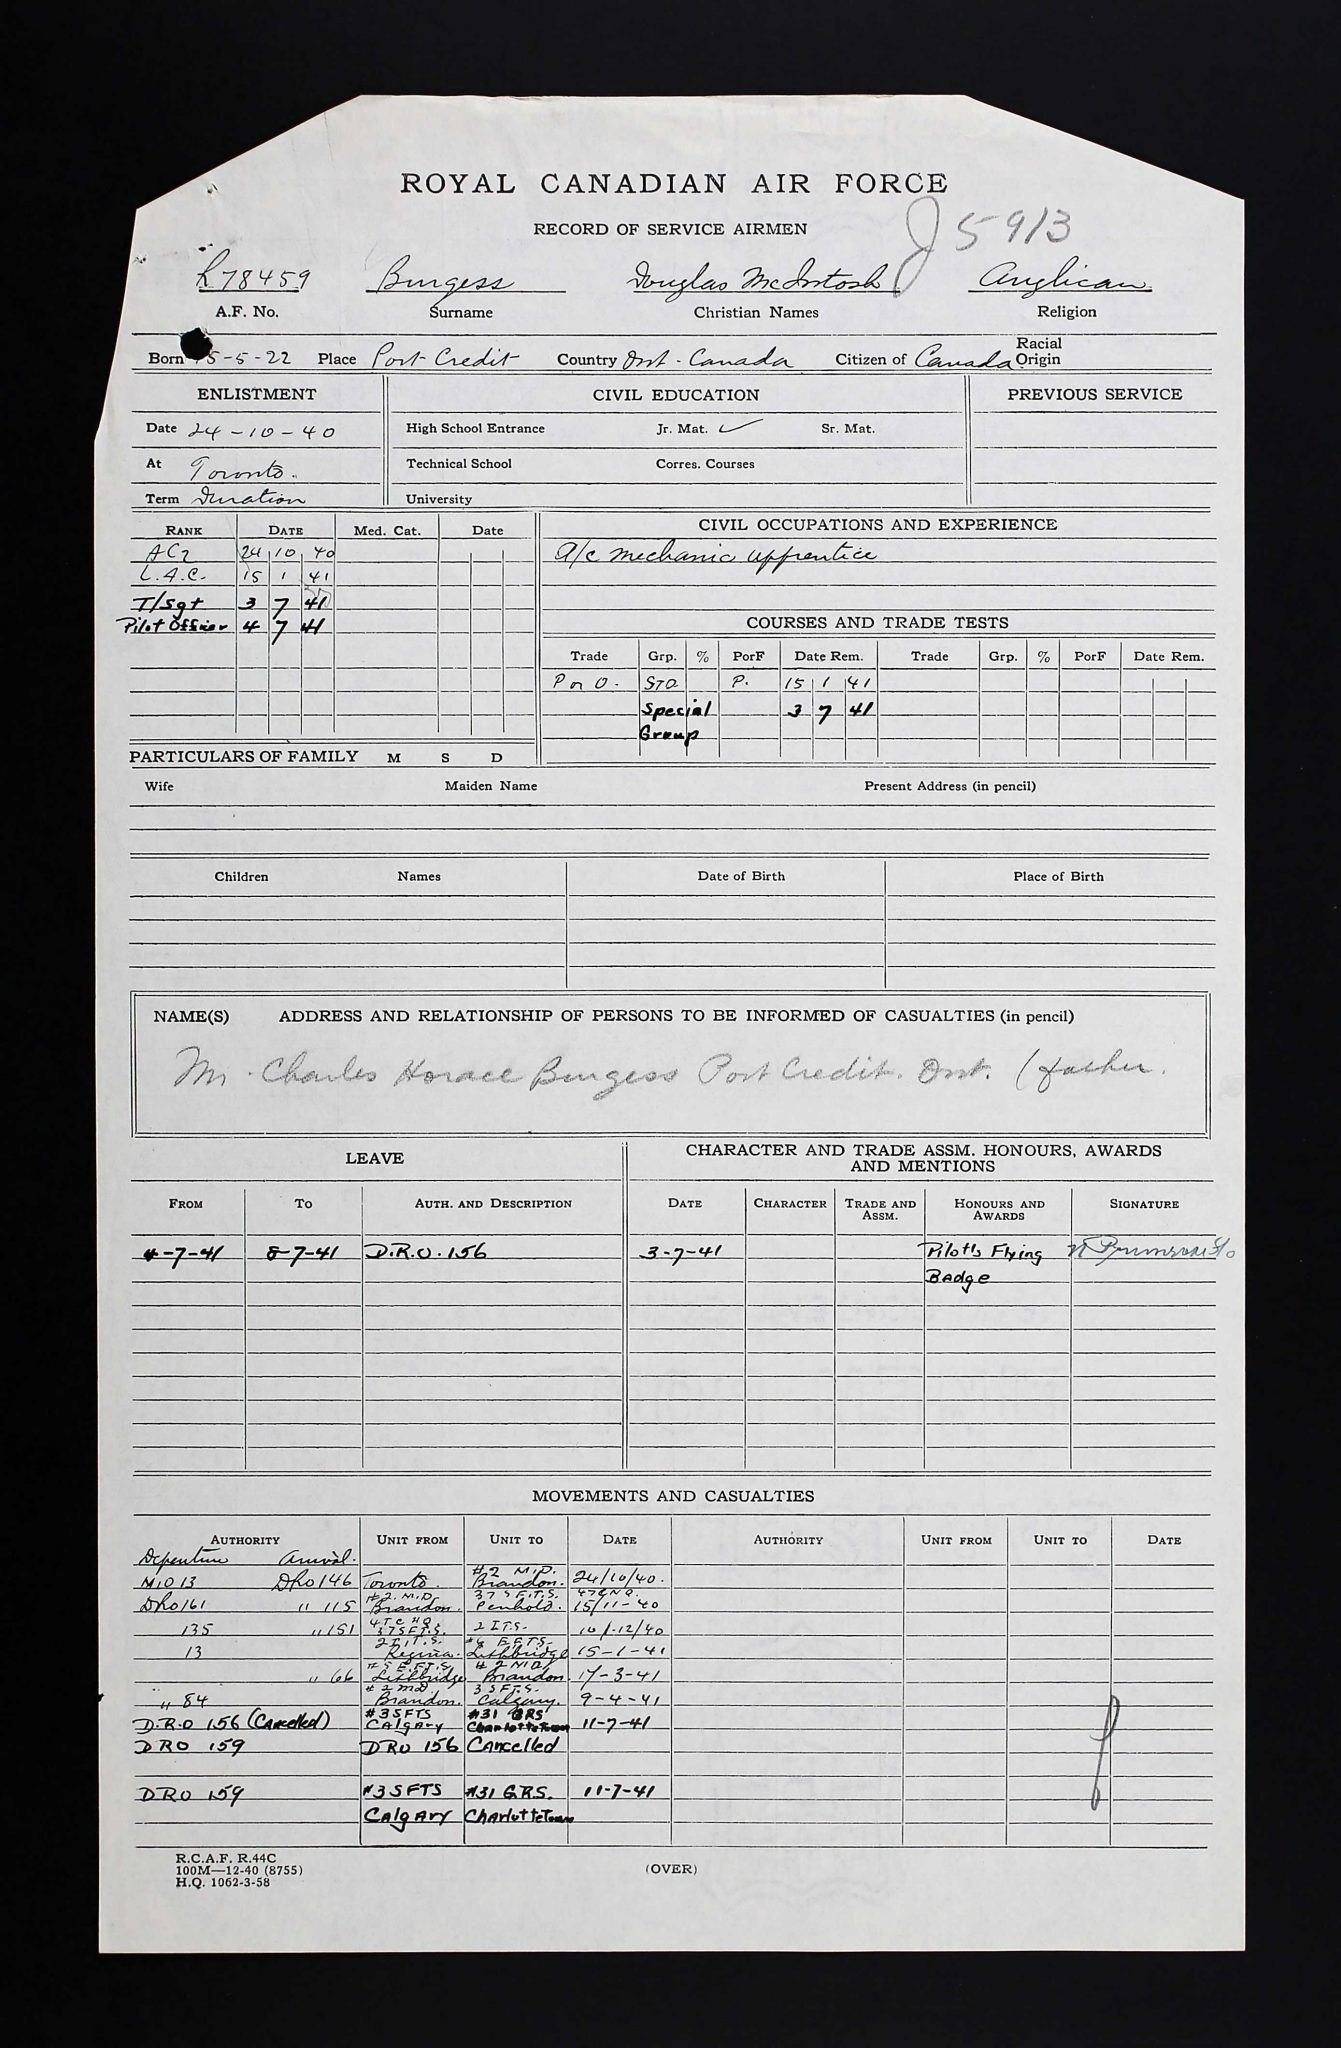 ROYAL CANADIAN AIR FORCE
RECORD OF SERVICE AIRMEN
J 5913
R78459 Burgess Douglas McIntosh Anglican
A.F. No. Surname Christian Names Religion
Born 5-5-22 Place Port Credit Country Ont. Canada Citizen of Canada Racial Origin
ENLISTMENT CIVIL EDUCATION PREVIOUS SERVICE
Date 24-10-40 High School Entrance Jr. Mat. ✓ Sr. Mat.
At Toronto. Technical School Corres. Courses
Term Duration University
RANK DATE Med. Cat. Date CIVIL OCCUPATIONS AND EXPERIENCE
AC2 24 10 40 A/c mechanic apprentice
L.A.C. 15 1 41
T/Sgt 3 7 41
Pilot Officer 4 7 41 COURSES AND TRADE TESTS
Trade Grp. % PorF Date Rem. Trade Grp. % PorF Date Rem.
P or O. STD P. 15 1 41
Special 3 7 41
Group
PARTICULARS OF FAMILY M S D
Wife Maiden Name Present Address (in pencil)
Children Names Date of Birth Place of Birth
NAME(S) ADDRESS AND RELATIONSHIP OF PERSONS TO BE INFORMED OF CASUALTIES (in pencil)
Mr. Charles Horace Burgess Port Credit. Ont. (father.
LEAVE CHARACTER AND TRADE ASSM. HONOURS, AWARDS
AND MENTIONS
FROM TO AUTH. AND DESCRIPTION DATE CHARACTER TRADE AND ASSM. HONOURS AND AWARDS SIGNATURE
4-7-41 8-7-41 D.R.O. 156 3-7-41 Pilot's Flying
Badge
MOVEMENTS AND CASUALTIES
AUTHORITY UNIT FROM UNIT TO DATE AUTHORITY UNIT FROM UNIT TO DATE
Departure Arrival.
M.O 13 DRO 146 Toronto. #2 M.D. Brandon. 24/10/40.
DRO 161 " 115 #2. M.D. Brandon. 37 S.F.T.S. Penhold. 15/11-40
135 " 151 4 T.C HQ 37 SFTS. 2 I.T.S. 10/-12/40
13 2 I.T.S. Regina. E.F.T.S. Lethbridge 15-1-41
" 66 #5 E.F.T.S. Lethbridge #2 M.D. Brandon. 17-3-41
" 84 #2 M.D. Brandon. 3 S F.T.S. Calgary. 9-4-41
D.R.O 156 (Cancelled) #3 SFTS Calgary #31 GRS Charlottetown 11-7-41
DRO 159 DRO 156 Cancelled
DRO 159 #3 SFTS #31 G.R.S. 11-7-41
Calgary Charlottetown
R.C.A.F. R.44C
100M—12-40 (8755)
H.Q. 1062-3-58
(OVER)